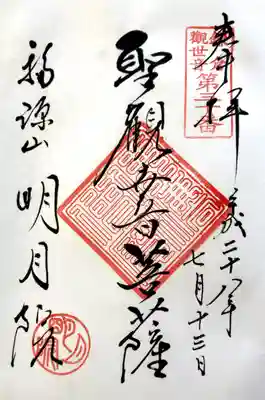 奉拝
平成二十八年
七月十三日
第三十番
聖観世音菩薩
福源山
明月院